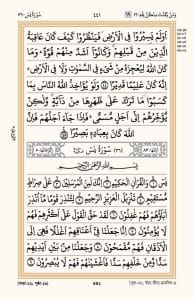 ٤٤١
أَوَلَمْ يَسِيرُوا فِي الْأَرْضِ فَيَنظُرُوا كَيْفَ كَانَ عَاقِبَةُ
الَّذِينَ مِن قَبْلِهِمْ وَكَانُوا أَشَدَّ مِنْهُمْ قُوَّةً وَمَا
كَانَ اللَّهُ لِيُعْجِزَهُ مِن شَيْءٍ فِي السَّمَوَاتِ وَلَا فِي الْأَرْضِ
إِنَّهُ كَانَ عَلِيمًا قَدِيرًا ۝ وَلَوْ يُؤَاخِذُ اللَّهُ النَّاسَ بِمَا
كَسَبُوا مَا تَرَكَ عَلَى ظَهْرِهَا مِن دَابَّةٍ وَلَكِن يُؤَخِّرُهُمْ
إِلَى أَجَلٍ مُّسَمًّى فَإِذَا جَاءَ أَجَلُهُمْ فَإِنَّ اللَّهَ
كَانَ بِعِبَادِهِ بَصِيرًا ۝
(٣٦) سُورَةُ يس
بِسْمِ اللَّهِ الرَّحْمَنِ الرَّحِيمِ
يس ۝ وَالْقُرْآنِ الْحَكِيمِ ۝ إِنَّكَ لَمِنَ الْمُرْسَلِينَ ۝ عَلَى صِرَاطٍ
مُّسْتَقِيمٍ ۝ تَنزِيلَ الْعَزِيزِ الرَّحِيمِ ۝ لِتُنذِرَ قَوْمًا مَّا أُنذِرَ
آبَاؤُهُمْ فَهُمْ غَافِلُونَ ۝ لَقَدْ حَقَّ الْقَوْلُ عَلَى أَكْثَرِهِمْ فَهُمْ
لَا يُؤْمِنُونَ ۝ إِنَّا جَعَلْنَا فِي أَعْنَاقِهِمْ أَغْلَالًا فَهِيَ إِلَى
الْأَذْقَانِ فَهُم مُّقْمَحُونَ ۝ وَجَعَلْنَا مِن بَيْنِ أَيْدِيهِمْ
سَدًّا وَمِنْ خَلْفِهِمْ سَدًّا فَأَغْشَيْنَاهُمْ فَهُمْ لَا يُبْصِرُونَ ۝